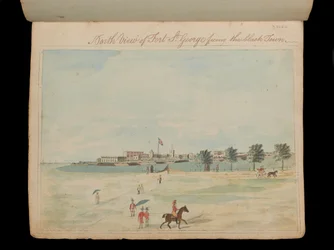 North View of Fort St. George from the Black Town.